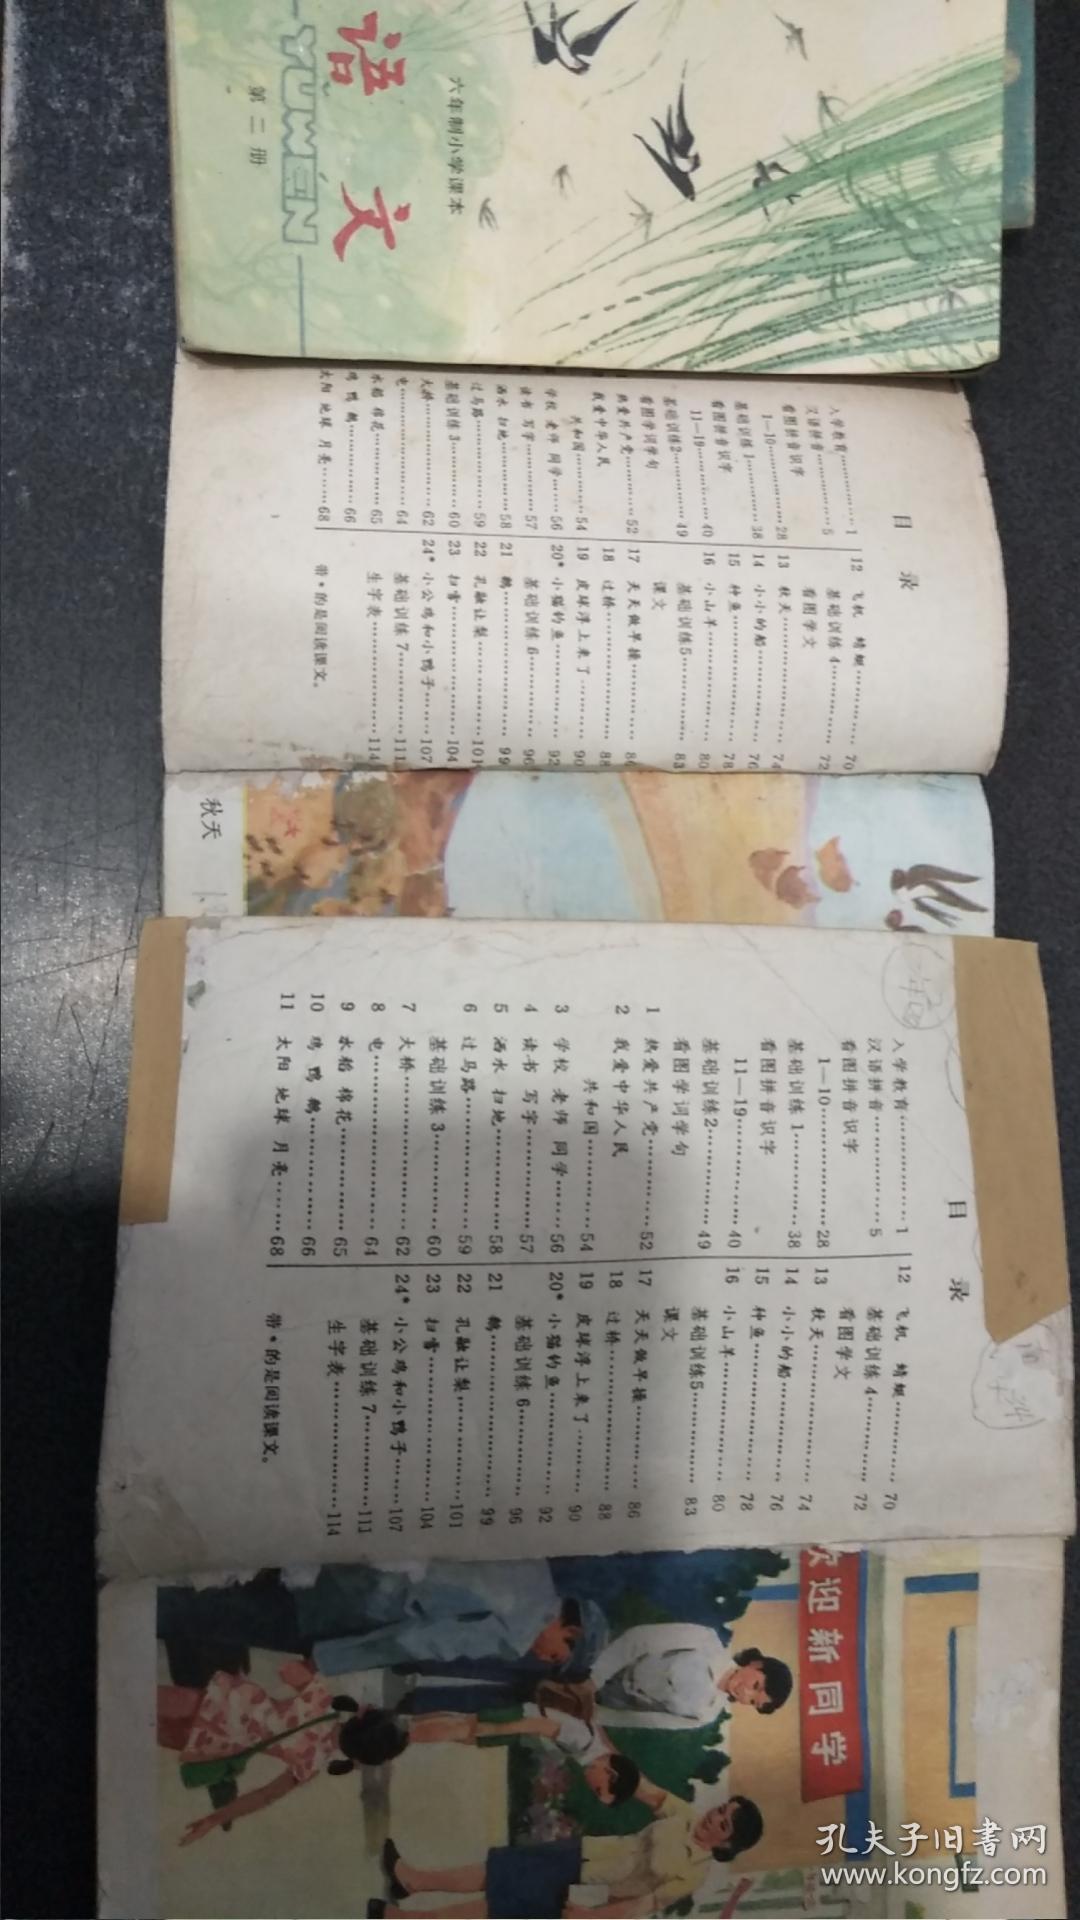 语文
YUWEN
六年制小学课本
第二册
目 录
入学教育……………1
汉语拼音……………5
看图拼音识字
1—10……………28
基础训练1…………38
看图拼音识字
11—19……………40
基础训练2…………49
看图学词学句
热爱共产党…………52
我爱中华人民
共和国…………54
学校 老师 同学……56
读书 写字…………57
洒水 扫地…………58
过马路……………59
基础训练3…………60
大桥………………62
电…………………64
水稻 棉花…………65
鸡 鸭 鹅…………66
太阳 地球 月亮……68
12 飞机 蜻蜓…………70
基础训练4…………72
看图学文
13 秋天………………74
14 小小的船…………76
15 种鱼………………78
16 小山羊……………80
基础训练5…………83
课文
17 天天做早操…………86
18 过桥………………88
19 皮球浮上来了………90
20* 小猫钓鱼…………92
基础训练6…………96
21 鹅…………………99
22 孔融让梨…………101
23 扫雪………………104
24* 小公鸡和小鸭子……107
基础训练7…………111
生字表……………114
带*的是阅读课文。
秋天
目 录
入学教育……………1
汉语拼音……………5
看图拼音识字
1—10……………28
基础训练1…………38
看图拼音识字
11—19……………40
基础训练2…………49
看图学词学句
1 热爱共产党…………52
2 我爱中华人民
共和国…………54
3 学校 老师 同学……56
4 读书 写字…………57
5 洒水 扫地…………58
6 过马路……………59
基础训练3…………60
7 大桥………………62
8 电…………………64
9 水稻 棉花…………65
10 鸡 鸭 鹅…………66
11 太阳 地球 月亮……68
12 飞机 蜻蜓…………70
基础训练4…………72
看图学文
13 秋天………………74
14 小小的船…………76
15 种鱼………………78
16 小山羊……………80
基础训练5…………83
课文
17 天天做早操…………86
18 过桥………………88
19 皮球浮上来了………90
20* 小猫钓鱼…………92
基础训练6…………96
21 鹅…………………99
22 孔融让梨…………101
23 扫雪………………104
24* 小公鸡和小鸭子……107
基础训练7…………111
生字表……………114
带*的是阅读课文。
欢迎新同学
孔夫子旧书网
www.kongfz.com